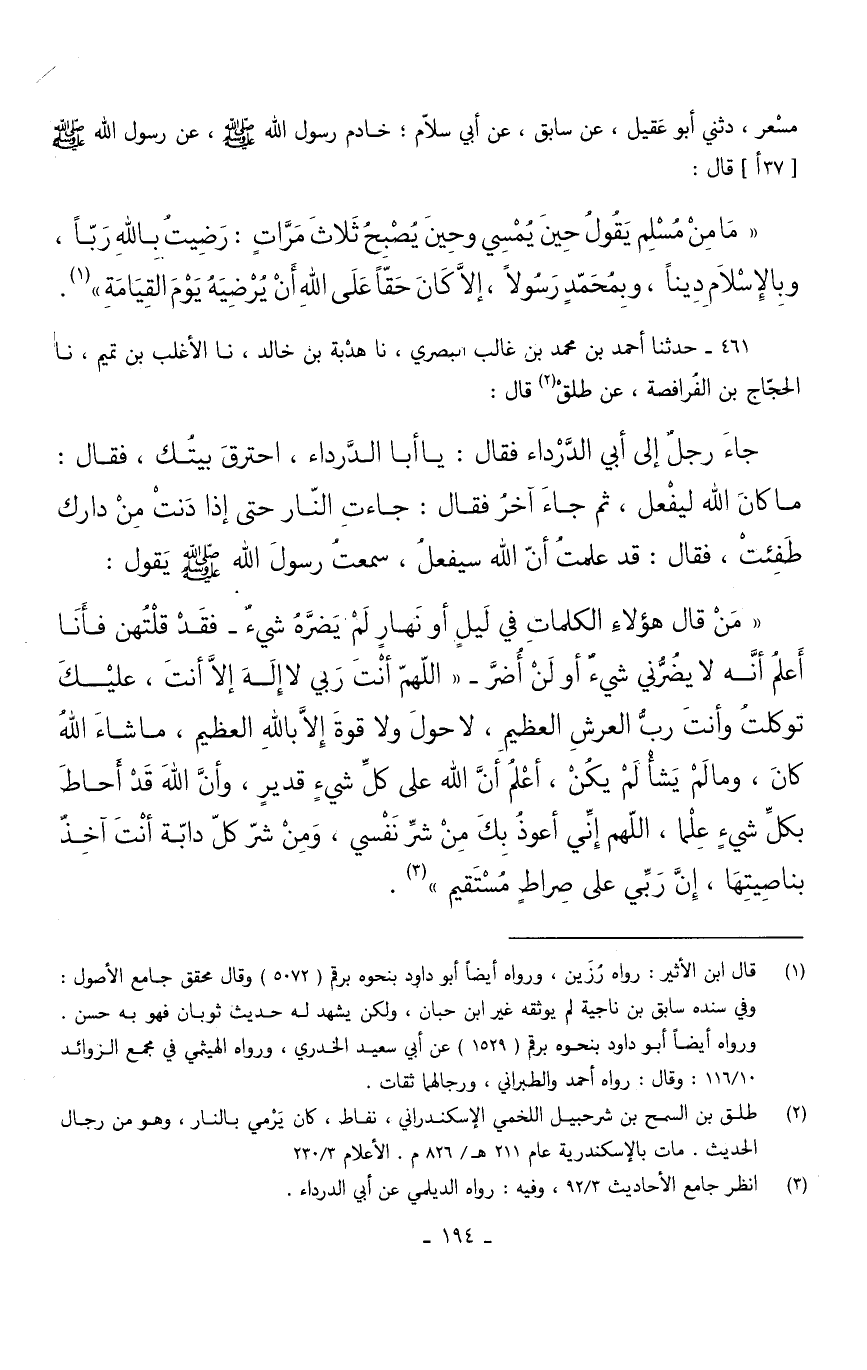 مسْعر ، دثني أبو عَقيل ، عن سابق ، عن أبي سلاّم ؛ خادم رسول الله ﷺ ، عن رسول الله ﷺ
[ ٣٧أ ] قال :
« مَا مِنْ مُسْلِمٍ يَقُولُ حينَ يُمْسِي وحينَ يُصْبِحُ ثَلاثَ مَرَّاتٍ : رَضِيتُ بِاللهِ رَبّاً ،
وبِالإِسْلاَمِ دِيناً ، وبِمُحَمّدٍ رَسُولاً ، إلاَّ كَانَ حَقّاً عَلَى اللهِ أَنْ يُرْضِيَهُ يَوْمَ القِيَامَةِ »(١) .
٤٦١ ـ حدثنا أحمد بن محمد بن غالب البصري ، نا هدْبة بن خالد ، نا الأغلب بن تميم ، نا
الحجّاج بن الفُرافصة ، عن طلقْ(٢) قال :
جاءَ رجلٌ إلى أبي الدَّرْداء فقال : يا أبا الدَّرداء ، احترقَ بيتُك ، فقال :
ما كانَ الله ليفْعل ، ثم جاءَ آخرُ فقال : جاءتِ النّار حتى إذا دَنتْ مِنْ دارك
طَفِئتْ ، فقال : قد علمتُ أنّ الله سيفعلُ ، سمعتُ رسولَ الله ﷺ يَقول :
« مَنْ قال هؤلاءِ الكلماتِ في لَيلٍ أو نَهارٍ لَمْ يَضرَّهُ شيءٌ ـ فقَدْ قلْتُهن فأَنَا
أَعلمُ أنَّه لا يضُرُّني شيءٌ أو لَنْ أُضرَّ ـ « اللّهمّ أنْتَ رَبي لا إلَهَ إلاَّ أنتَ ، عليْكَ
توكلتُ وأنتَ ربُّ العرشِ العظيمِ ، لا حولَ ولا قوةَ إلاَّ باللهِ العظيم ، ما شاءَ اللهُ
كانَ ، وما لَمْ يَشأْ لَمْ يكُنْ ، أعْلمُ أنَّ الله على كلِّ شيءٍ قديرٍ ، وأنَّ اللهَ قَدْ أَحاطَ
بكلِّ شيءٍ عِلْما ، اللّهم إنِّي أعوذُ بكَ مِنْ شرِّ نَفْسي ، وَمِنْ شرّ كلّ دابّة أنْتَ آخِذٌ
بناصِيتِهَا ، إنَّ رَبِّي على صِراطٍ مُسْتَقيم »(٣) .
(١) قال ابن الأثير : رواه رُزَين ، ورواه أيضاً أبو داود بنحوه برقم ( ٥٠٧٢ ) وقال محقق جامع الأصول :
وفي سنده سابق بن ناجية لم يوثقه غير ابن حبان ، ولكن يشهد له حديث ثوبان فهو به حسن .
ورواه أيضاً أبو داود بنحوه برقم ( ١٥٢٩ ) عن أبي سعيد الخدري ، ورواه الهيثمي في مجمع الزوائد
١١٦/١٠ : وقال : رواه أحمد والطبراني ، ورجالهما ثقات .
(٢) طلق بن السمح بن شرحبيل اللخمي الإسكندراني ، نفاط ، كان يَرْمي بالنار ، وهو من رجال
الحديث . مات بالإسكندرية عام ٢١١ هـ / ٨٢٦ م . الأعلام ٢٣٠/٣
(٣) انظر جامع الأحاديث ٩٢/٣ ، وفيه : رواه الديلمي عن أبي الدرداء .
ـ ١٩٤ ـ